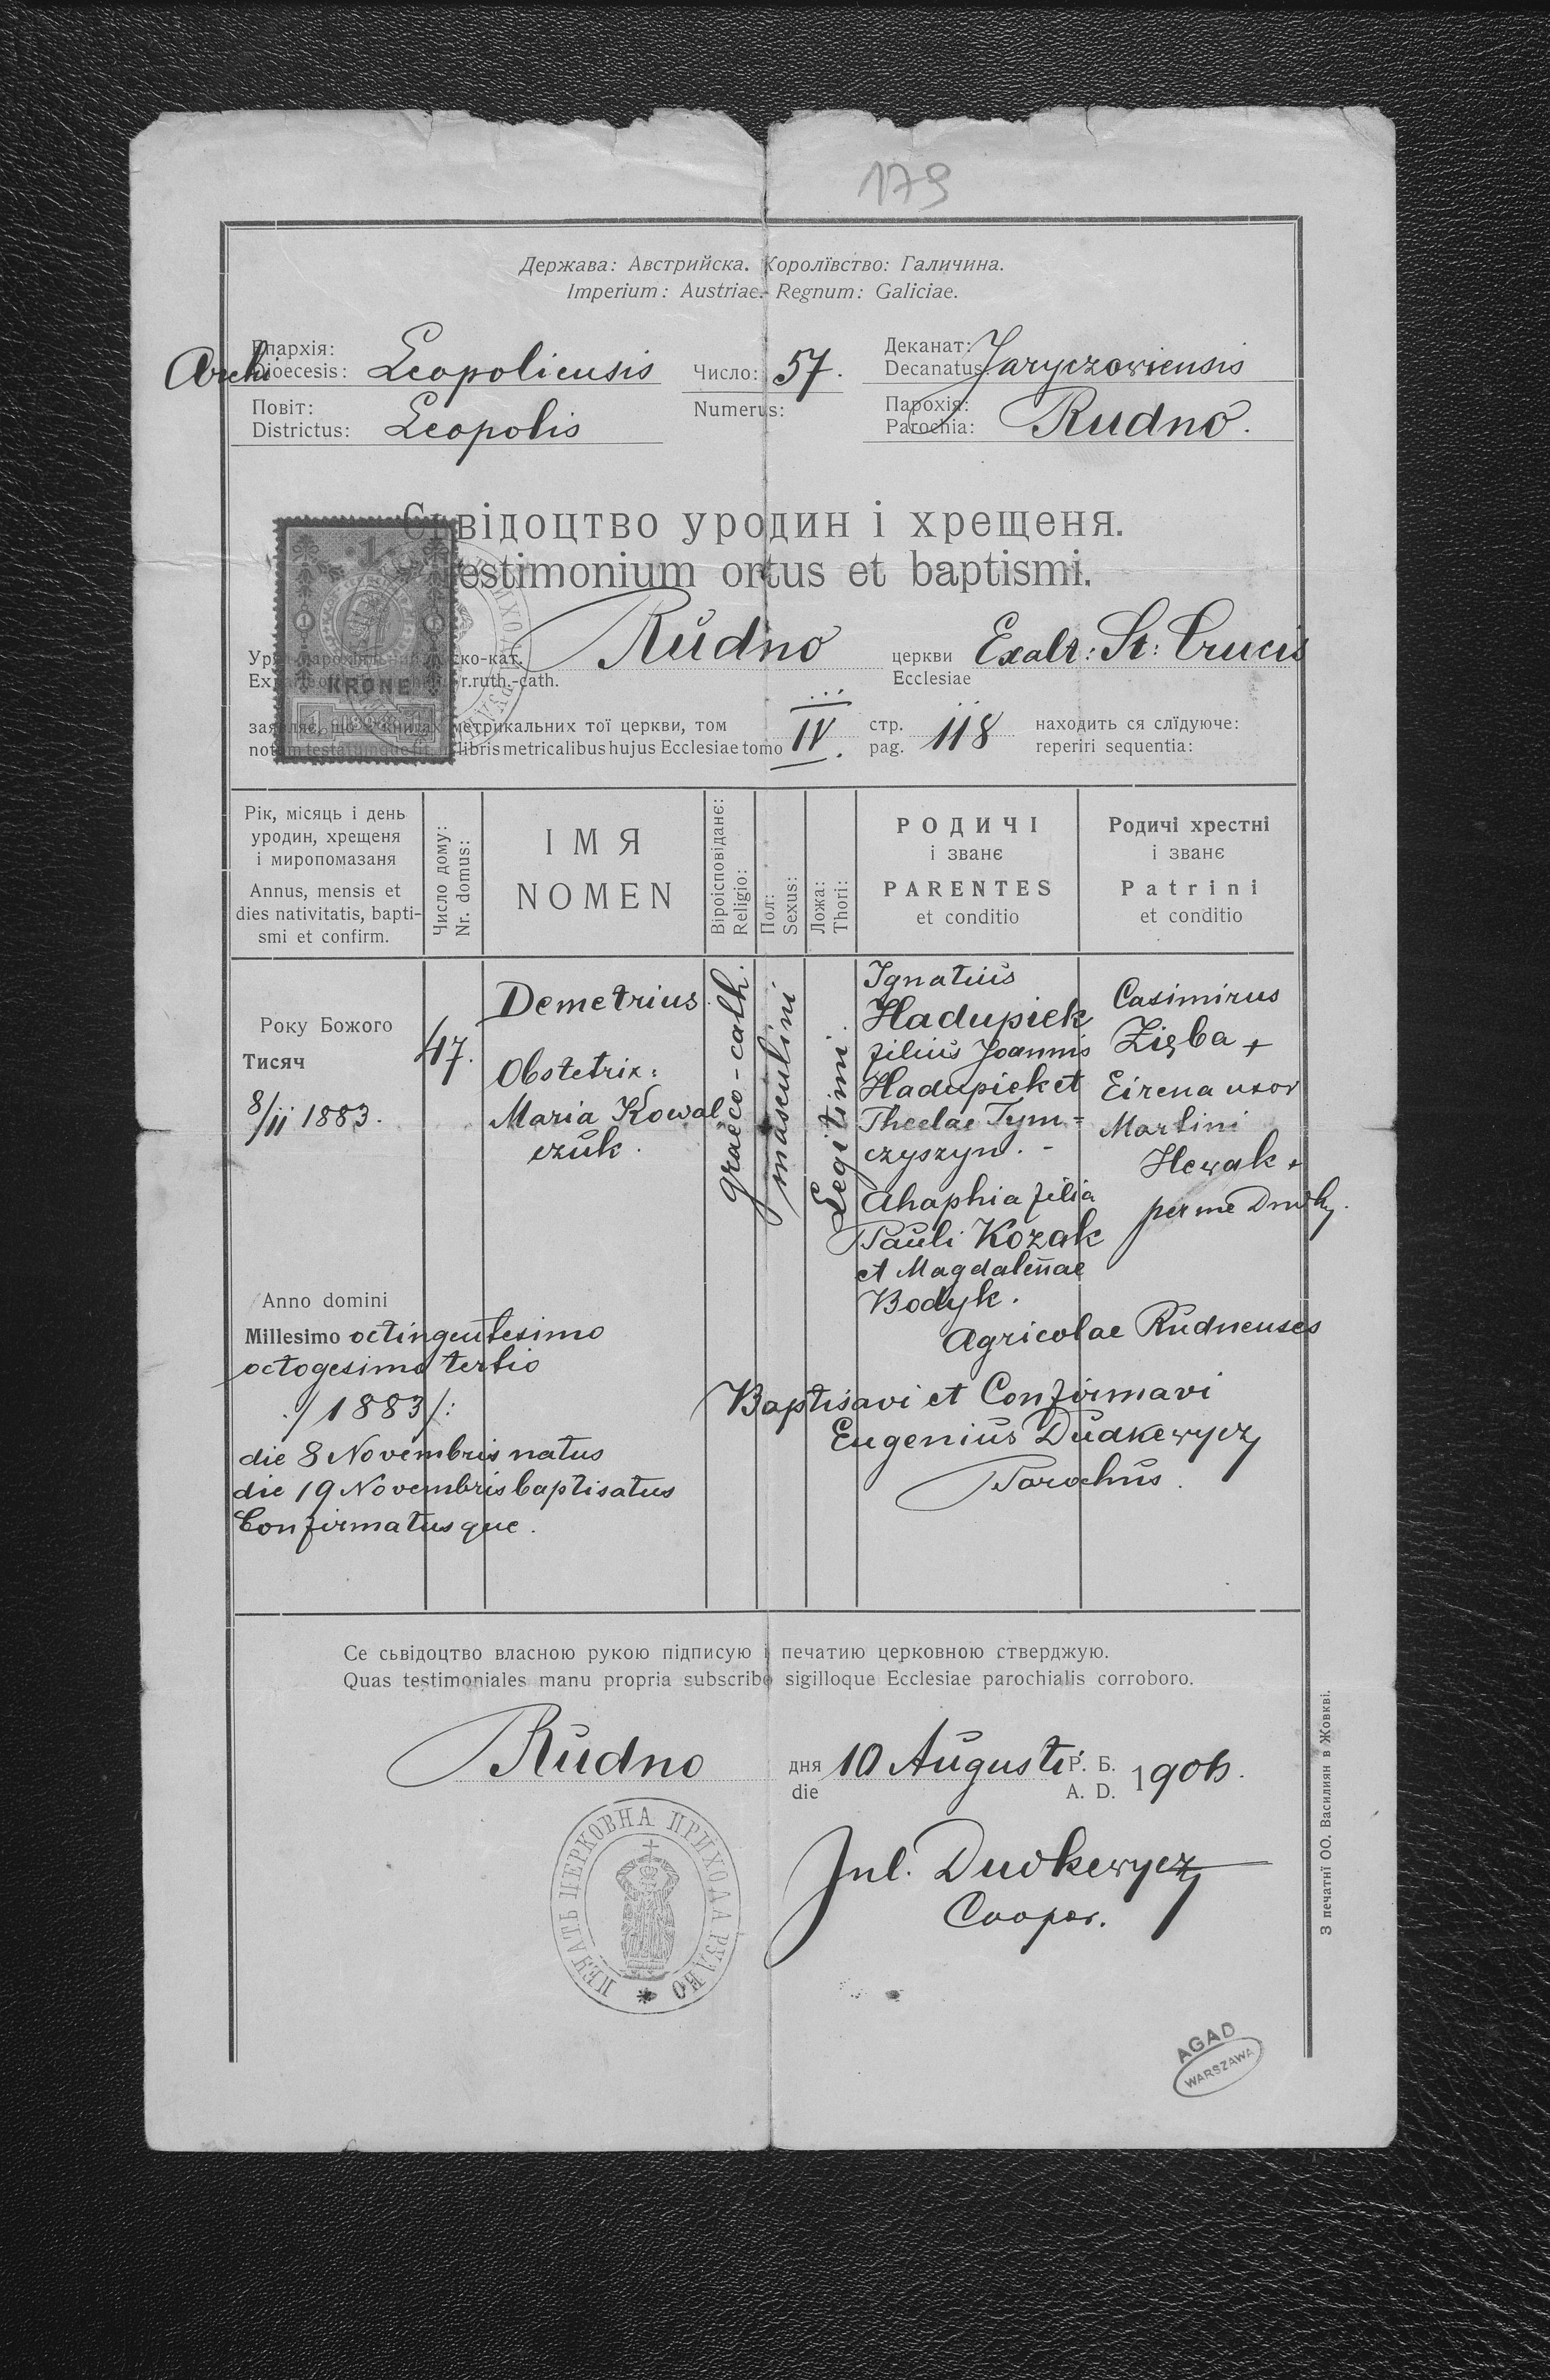 179
Держава: Австрийска. Королївство: Галичина.
Imperium: Austriae.- Regnum: Galiciae.
Епархія:
Archi Dioecesis: Leopoliensis
Число: 57.
Numerus:
Деканат:
Decanatus: Jaryczowiensis
Повіт:
Districtus: Leopolis
Парохія:
Parochia: Rudno.
Сьвідоцтво уродин і хрещеня.
Testimonium ortus et baptismi.
1
KRONE
Rudno
церкви
Ecclesiae
Exalt: St: Crucis
ско-кат.
gr.ruth.-cath.
метрикальних тої церкви, том
libris metricalibus hujus Ecclesiae tomo IV.
стр.
pag. 118
находить ся слїдуюче:
reperiri sequentia:
Рік, місяць і день
уродин, хрещеня
і миропомазаня
Annus, mensis et
dies nativitatis, bapti-
smi et confirm.
Число дому:
Nr. domus:
ІМЯ
NOMEN
Віроісповіданє:
Religio:
Пол:
Sexus:
Ложа:
Thori:
РОДИЧІ
і званє
PARENTES
et conditio
Родичі хрестні
і званє
Patrini
et conditio
Року Божого
Тисяч
8/11 1883.
47.
Demetrius
Obstetrix:
Maria Kowal
czuk.
graeco-cath.
masculini
Legitimi.
Ignatius
Hadupiek
filius Joannis
Hadupiek et
Theclae Tym=
czyszyn. -
Ahaphia filia
Pauli Kozak
et Magdalenae
Bodyk.
Agricolae Rudnenses
Casimirus
Zięba +
Eirena uxor
Martini
Hewak +
per me
Anno domini
Millesimo octingentesimo
octogesimo tertio
./1883/:
die 8 Novembris natus
die 19 Novembris baptisatus
Confirmatusque.
Baptisavi et Confirmavi
Eugenius Dudkewycz
Parochus.
Се сьвідоцтво власною рукою підписую і печатию церковною стверджую.
Quas testimoniales manu propria subscribo sigilloque Ecclesiae parochialis corroboro.
Rudno
дня
die
10 Augusti
Р. Б.
A. D.
Jul. Dudkewycz
Cooper.
ПЕЧАТЬ ЦЕРКОВНА ПРИХОДА РУДНО
З печатнї ОО. Василиян в Жовкві.
AGAD
WARSZAWA